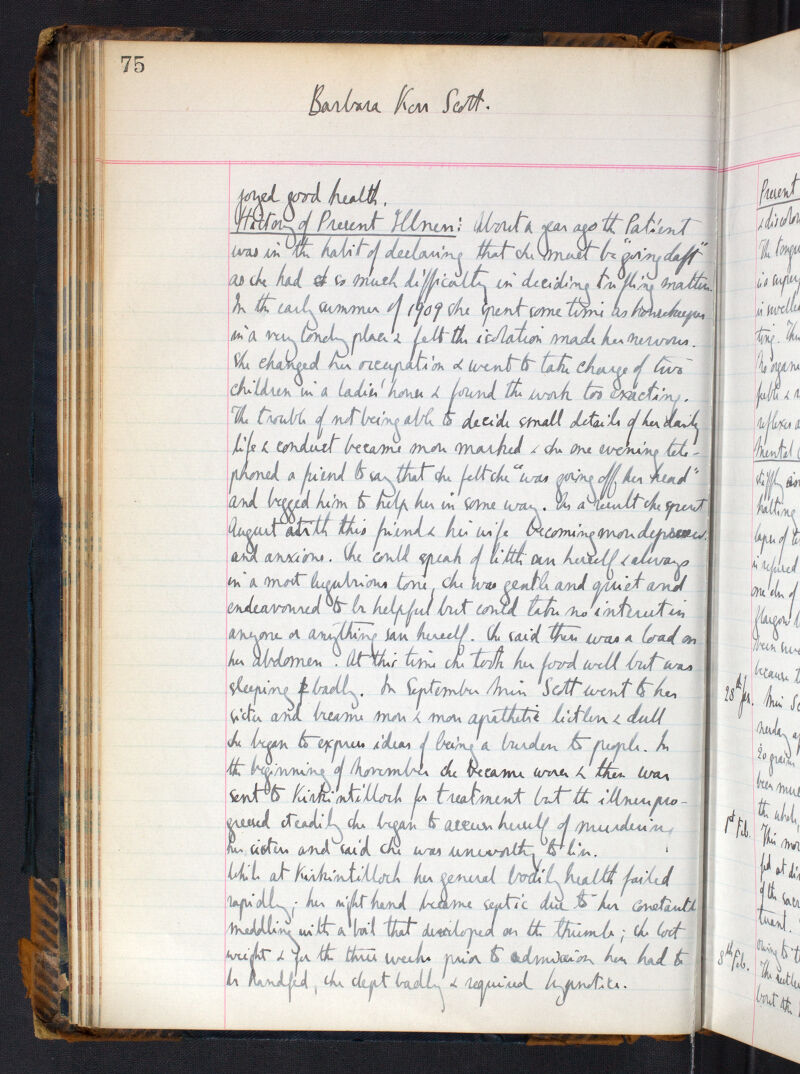 75
Barbara Kerr Scott.
joyed good health.
History of Present Illness: About a year ago the Patient
was in the habit of declaring that she must be "going daft"
as she had so much difficulty in deciding trifling matters.
In the early summer of 1909 she spent some time as housekeeper
in a very lonely place & felt the isolation made her nervous.
She changed her occupation & went to take charge of two
children in a ladies' house & found the work too exacting.
The trouble of not being able to decide small details of her daily
life & conduct became more marked & she one evening tele-
phoned a friend to say that she felt she "was going off her head"
and begged him to help her in some way. As a result she spent
August with this friend & his wife becoming more depressed
and anxious. She could speak of little save herself & always
in a most lugubrious tone, she was gentle and quiet and
endeavoured to be helpful but could take no interest in
anyone or anything save herself. She said there was a load on
her abdomen. At this time she took her food well but was
sleeping badly. In September Miss Scott went to her
sister and became more & more apathetic listless & dull
she began to express ideas of being a burden to people. In
the beginning of November she became worse & then was
sent to Kirkintilloch for treatment but the illness pro-
gressed steadily she began to accuse herself of murdering
her sister and said she was unworthy to live.
While at Kirkintilloch her general bodily health failed
rapidly; her right hand became septic due to her constantly
meddling with a boil that developed on the thumb; she lost
weight & for the three weeks prior to admission has had to
be handfed, she slept badly & required hypnotics.
Present
& discolou
The tongue
is a super
is swelle
ting. The
No organ
feeble &
reflexes a
Mental
stiffly
halting
lapse of
is refused
one she of
Glasgow
been
because
28th Jan. Miss Sc
20 grains
been muc
the whole
1st Feb. This mor
fed at di
of the
8th Feb. owing to t
The
bout the